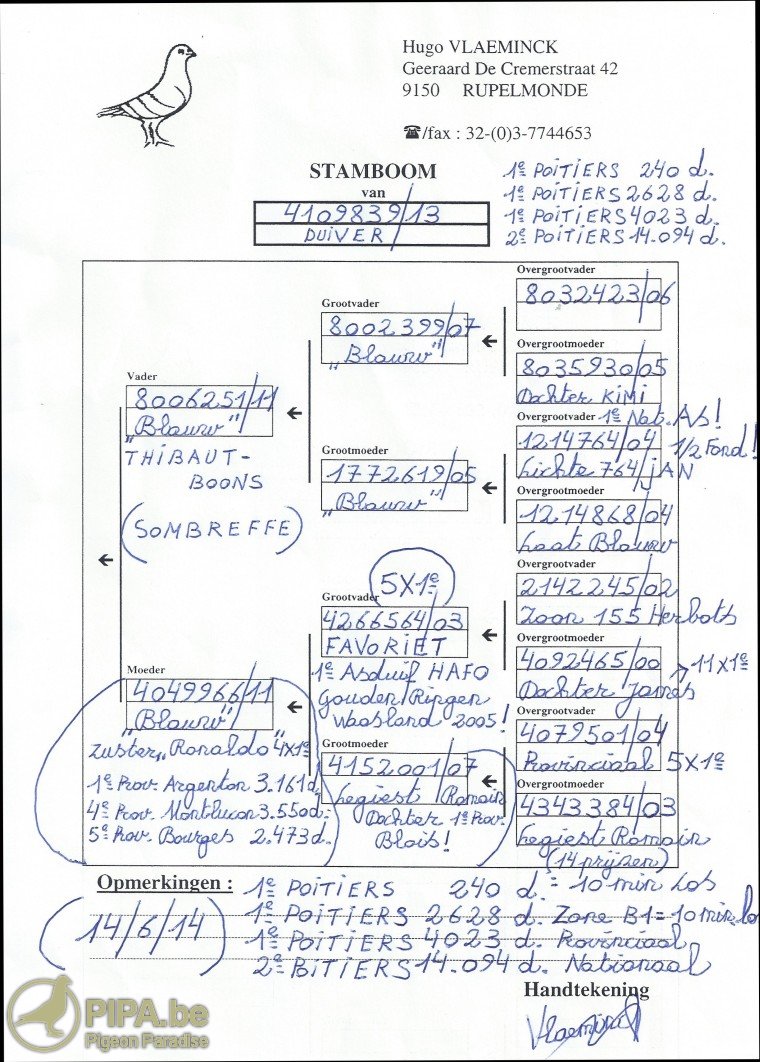 Hugo VLAEMINCK
Geeraard De Cremerstraat 42
9150 RUPELMONDE
☎/fax : 32-(0)3-7744653
STAMBOOM
van
4109839/13
DUIVER
1e POITIERS 240 d.
1e POITIERS 2628 d.
1e POITIERS 4023 d.
2e POITIERS 14.094 d.
Vader
8006251/11
"Blauw"
THIBAUT-
BOONS
(SOMBREFFE)
Moeder
4049966/11
"Blauw"
zuster "Ronaldo" 4x1e
1e Prov. Argenton 3.161 d.
4e Prov. Montlucon 3.550 d.
5e Prov. Bourges 2.473 d.
Grootvader
8002399/07
"Blauw"
Grootmoeder
1772619/05
"Blauw"
5X1e
Grootvader
4266564/03
FAVORIET
1e Asduif HAFO
Gouden Ringen
Waasland 2005!
Grootmoeder
4152001/07
Legiest Romain
Dochter 1e Prov.
Blois!
Overgrootvader
8032423/06
Overgrootmoeder
8035930/05
Dochter KIMI
Overgrootvader 1e Nat. As!
1214764/04 1/2 Fond!
Lichte 764/JAN
Overgrootmoeder
1214868/04
Laat Blauw
Overgrootvader
2142245/02
Zoon 155 Herbots
Overgrootmoeder
4092465/00 → 11x1e
Dochter James
Overgrootvader
4079501/04
Provinciaal 5X1e
Overgrootmoeder
4343384/03
Legiest Romain
(14 prijzen)
Opmerkingen : 1e POITIERS 240 d. = 10 min Los
(14/6/14) 1e POITIERS 2628 d. Zone B1 = 10 min. lo
1e POITIERS 4023 d. Provinciaal
2e POITIERS 14.094 d. Nationaal
Handtekening
Vlaeminck
PIPA.be
Pigeon Paradise